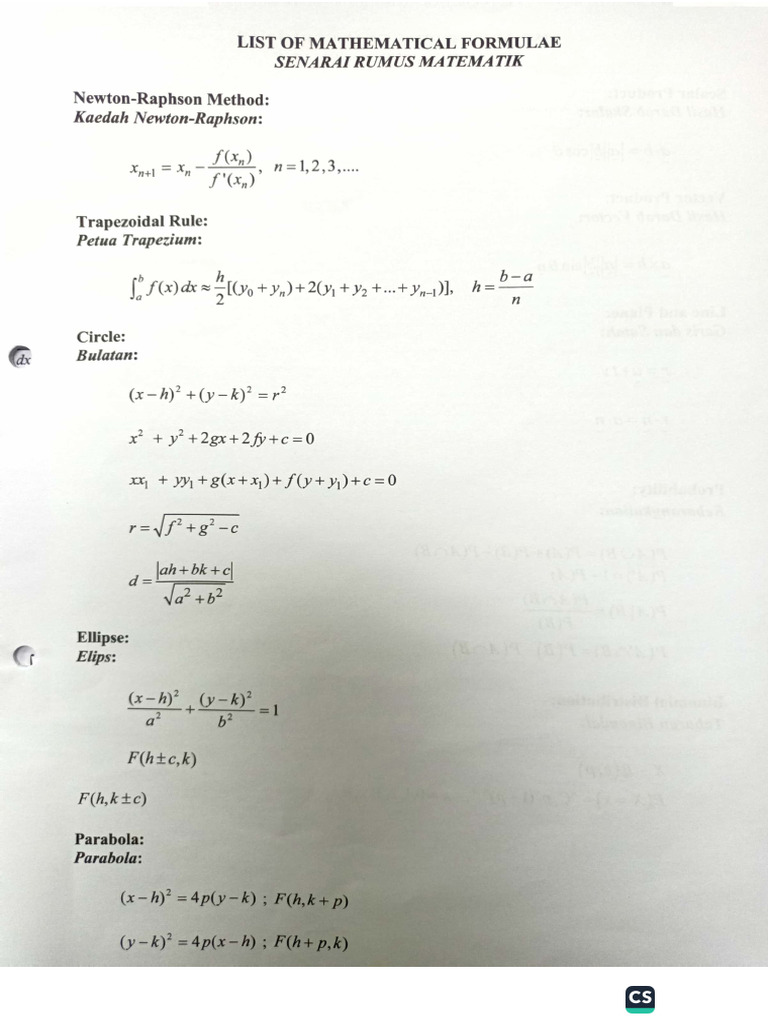 LIST OF MATHEMATICAL FORMULAE
SENARAI RUMUS MATEMATIK
Newton-Raphson Method:
Kaedah Newton-Raphson:
xₙ₊₁ = xₙ − f(xₙ)/f'(xₙ), n = 1, 2, 3, ....
Trapezoidal Rule:
Petua Trapezium:
∫ₐᵇ f(x) dx ≈ h/2 [(y₀ + yₙ) + 2(y₁ + y₂ + ... + yₙ₋₁)], h = (b − a)/n
Circle:
dx
Bulatan:
(x − h)² + (y − k)² = r²
x² + y² + 2gx + 2fy + c = 0
xx₁ + yy₁ + g(x + x₁) + f(y + y₁) + c = 0
r = √(f² + g² − c)
d = |ah + bk + c|/√(a² + b²)
Ellipse:
Elips:
(x − h)²/a² + (y − k)²/b² = 1
F(h ± c, k)
F(h, k ± c)
Parabola:
Parabola:
(x − h)² = 4p(y − k) ; F(h, k + p)
(y − k)² = 4p(x − h) ; F(h + p, k)
CS